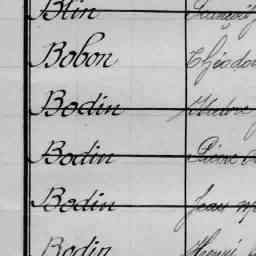 Blin
Bobon Théodo
Bodin
Bodin Pierre
Bodin Jean M
Bodin Henri